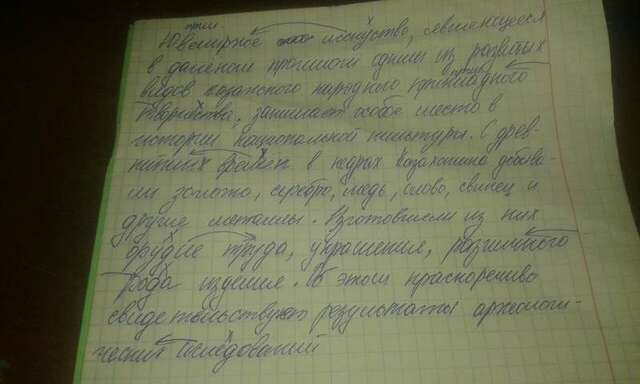 прил.
Ювелирное искусство, являющееся
в далёком прошлом одним из развитых
видов казахского народного прикладного
творчества, занимает особое место в
истории национальной культуры. С древ-
нейших времён в недрах Казахстана добыва-
ли золото, серебро, медь, олово, свинец и
другие металлы. Изготовляли из них
орудие труда, украшения, различного
рода изделия. Об этом красноречиво
свидетельствуют результаты археологи-
ческих исследований